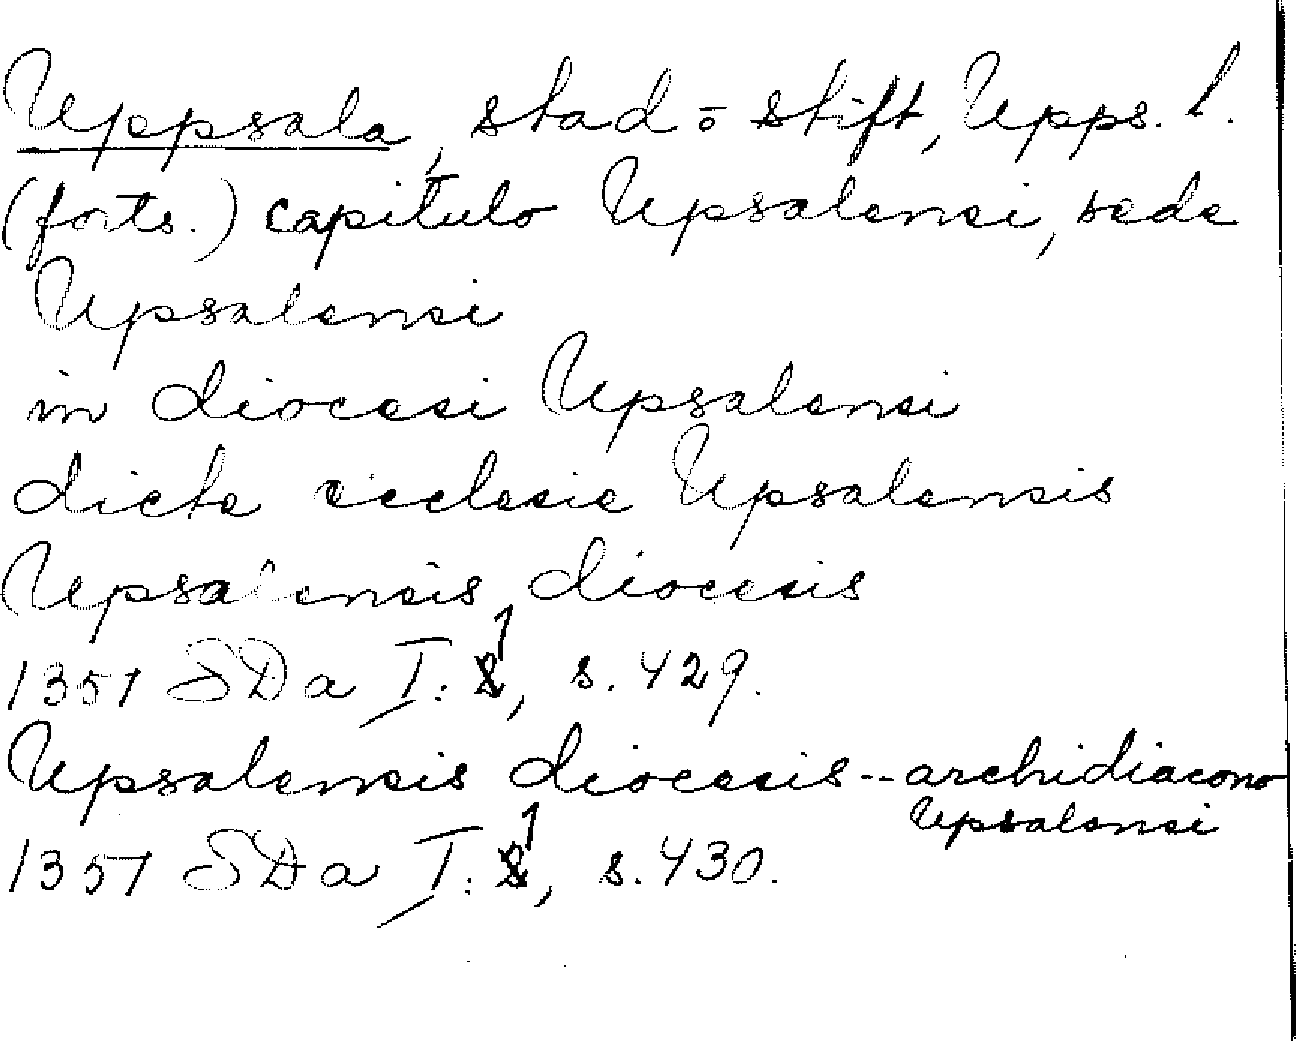 Uppsala, stad o stift, Upps. l.
(forts.) capitulo Upsalensi, sede
Upsalensi
in diocesi Upsalensi
dicte ecclesie Upsalensis
Upsalensis diocesis
1357 SDa I: 1, s. 429.
Upsalensis diocesis -- archidiacono
Upsalensi
1357 SDa I: 1, s. 430.